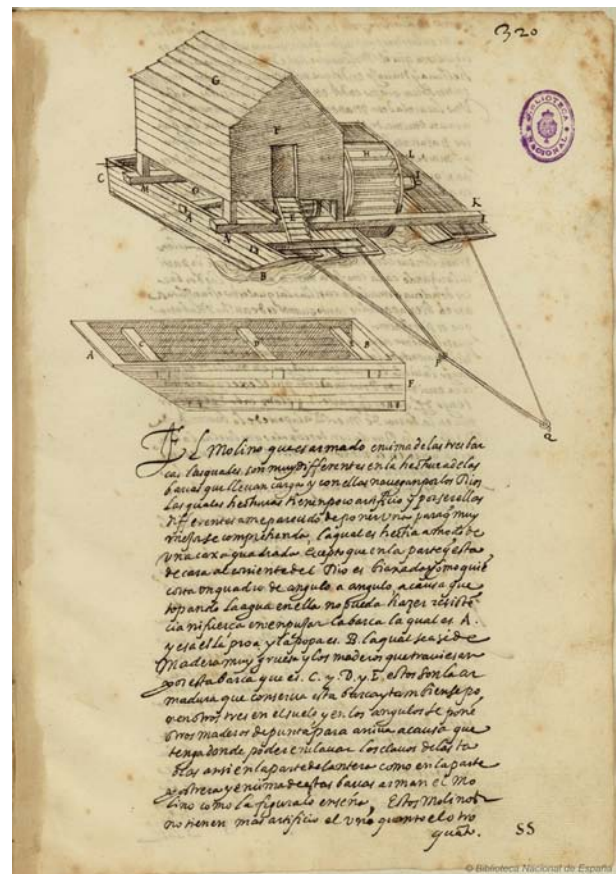 320
BIBLIOTECA NACIONAL
G
F
H
L
C
M
O
I
K
E
N
D
B
P
Q
A
C
D
B
F
EL Molino que es armado enzima de las tres bar
cas las quales son muy differentes en la hechura de las
barcas que llevan cargas y con ellas navegan por los Rios
las quales hechuras tienen poco artificio y por ser ellas
differentes a me parecido de poner una para q̃ muy
se comprehenda laqual es hecha a modo de
una caxa quadrada excepto que en la parte q̃ esta
de cara al corriente del Rio es
corta un quadro de angulo a angulo a causa que
topando la agua en ella no pueda hazer resistẽ
cia ni fuerca en enpuxar la barca la qual es A.
y esa es la proa y la popa es B. la qual sea de
Madera muy gruesa y los maderos que traviesan
por esta barca que es. C. y. D. y. E. estos son la ar
madura que conserva esta barca y tambien se po
nen otros tres en el suelo y en los angulos se ponẽ
otros maderos de punta para arriva a causa que
tenga donde poder enclavar los clavos de las ta
blas ansi en la parte delantera como en la parte
postrera y enzima de estas barcas arman el Mo
lino como la figura lo enseña Estos Molinos
no tienen mas artificio el uno quanto el otro
SS
© Biblioteca Nacional de España